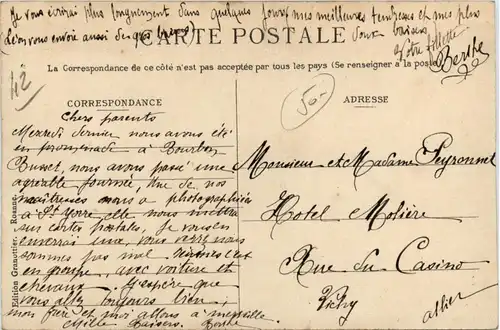 Je vous écrirai plus longuement dans quelques jours, mes meilleures tendresses et mes plus
Léon vous envoie aussi de gros baisers
doux baisers
Votre fillette
Berthe
CARTE POSTALE
La Correspondance de ce côté n'est pas acceptée par tous les pays (Se renseigner à la poste)
42
50-
CORRESPONDANCE
ADRESSE
Chers parents
Mercredi dernier nous avons été
en promenade à Bourbon
Busset, nous avons passé une
agréable journée, Une de nos
maîtresses nous a photographiées
à St Yorre, elle nous mettra
sur cartes postales, je vous en
enverrai une, vous verrez nous
sommes pas mal c'est
en groupe, avec voiture et
chevaux. J'espère que
vous allez toujours bien,
moi et allons à merveille
Mille Baisers. Berthe
Monsieur et Madame Peyronnet
Hotel Molière
Rue du Casino
Vichy
allier
Edition Grenottier, Roanne.